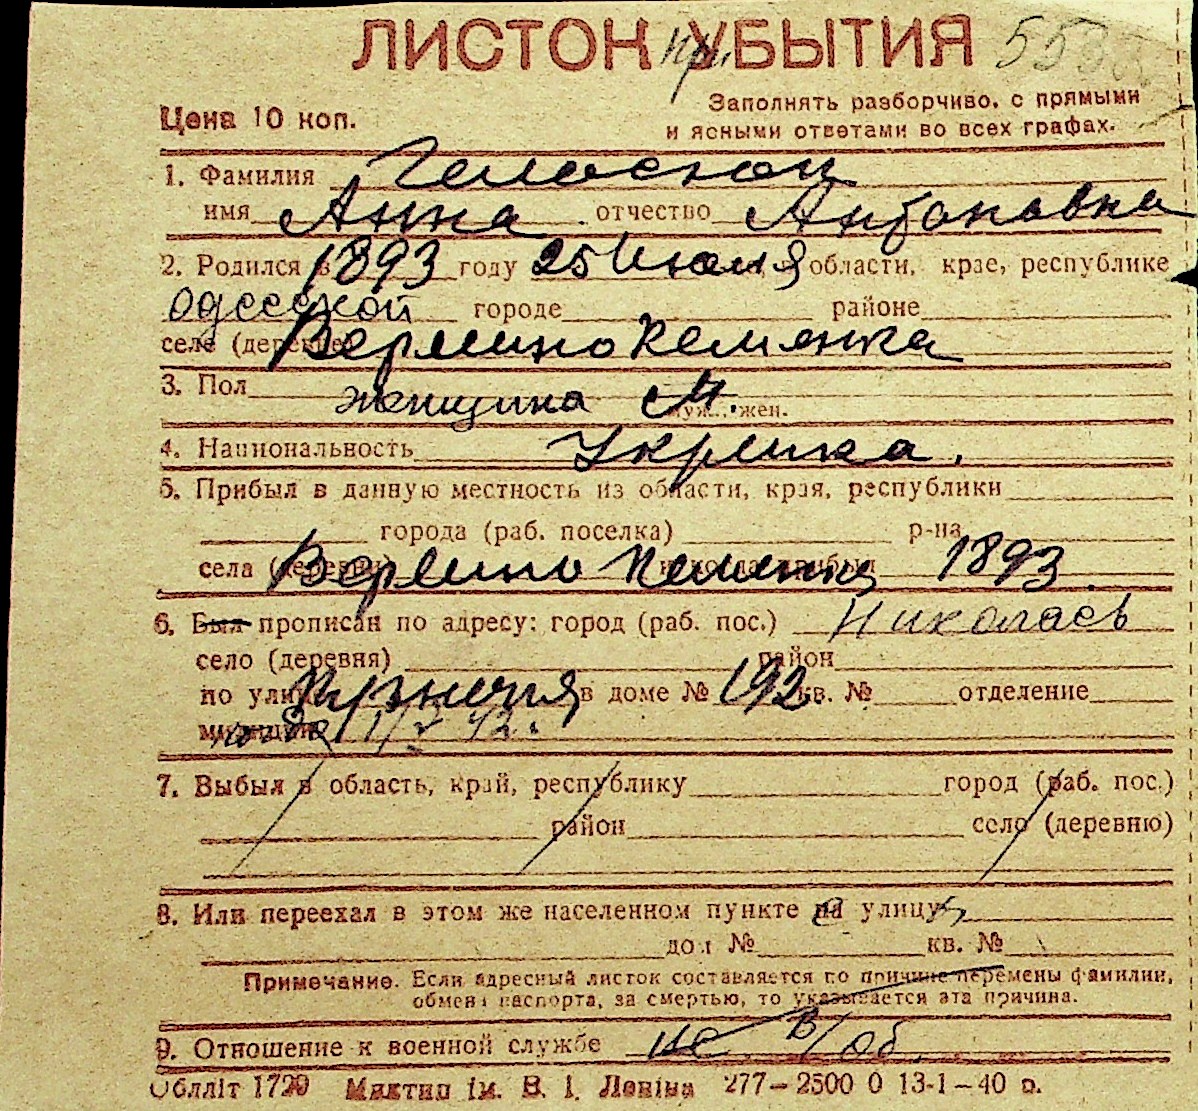 ЛИСТОК УБЫТИЯ
При.
Цена 10 коп.
Заполнять разборчиво, с прямыми
и ясными ответами во всех графах.
1. Фамилия
имя Анна отчество Антоновна
2. Родился в 1893 году 25 Июля области, крае, республике
одесской городе районе
селе (деревне)
3. Пол женщина муж. жен.
4. Национальность Укрлика.
5. Прибыл в данную местность из области, края, республики
города (раб. поселка) р-на
села (деревни) и когда прибыл 1893
6. Был прописан по адресу: город (раб. пос.) Николаев
село (деревня) район
по улице в доме № 192 кв. № отделение
милиции
7. Выбыл в область, край, республику город (раб. пос.)
район село (деревню)
8. Или переехал в этом же населенном пункте на улицу
дом № кв. №
Примечание. Если адресный листок составляется по причине перемены фамилии,
обмена паспорта, за смертью, то указывается эта причина.
9. Отношение к военной службе не в/об.
Обллiт 1729 Мяктип iм. В. I. Ленiна 277—2500 0 13-1—40 р.